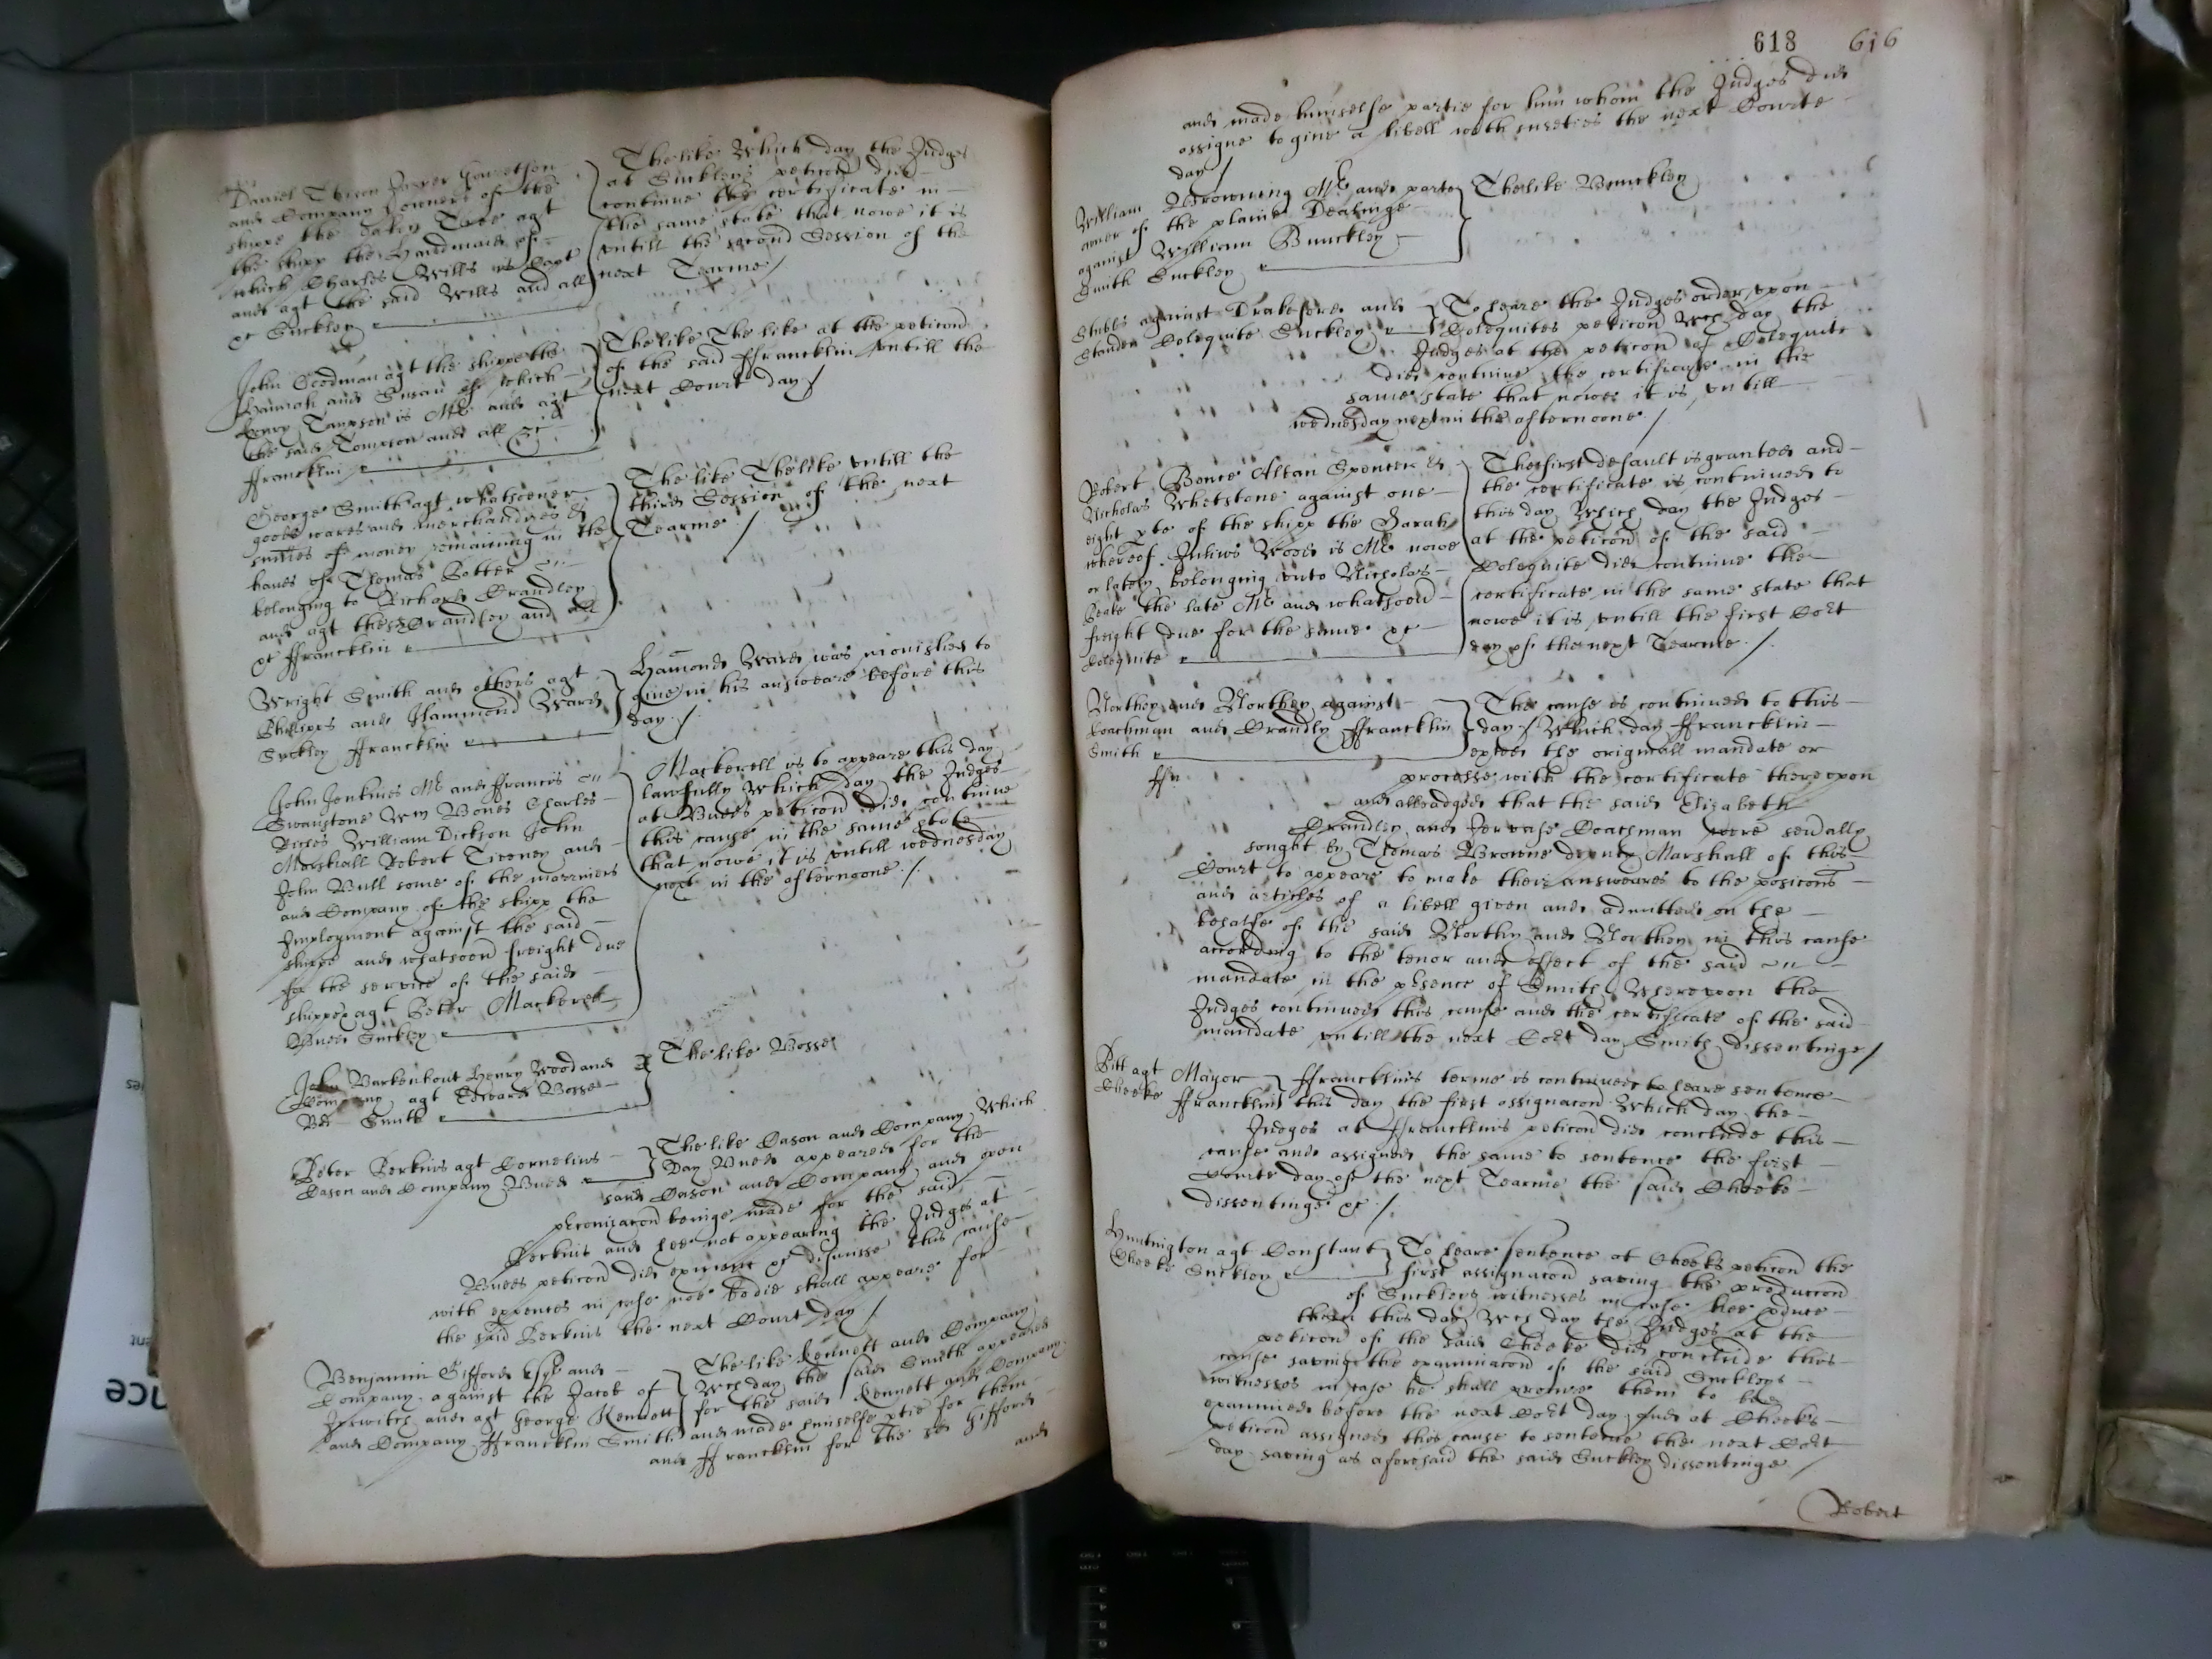 Daniel Theron Jasper
and Company owners of the
shippe the Oaken Tree agt
the shipp the Handmaid of
which Charles Wills is Capt
and agt the said Wills and all
&c Suckley
The like Which day the Judges
at Suckleys peticon did
continue the certificate in
the same state that nowe it is
untill the second Session of the
next Tearme /
John Goodman agt the shippe the
Hannah and Susan of which
Henry Tompson is Mr and agt
the said Tompson and all &c
ffrancklin
The like The like at the peticon
of the said ffrancklin untill the
next Court day /
George Smith agt whatsoever
goods wares and merchandizes &
summes of money remaining in the
hands of Thomas Potter
belonging to Richard Crandley
and agt the sd Crandley and all
&c ffrancklin
The like The like untill the
third Session of the next
Tearme /
Wright Smith and others agt
Phillipps and Hammond Ward
Suckley ffrancklin
Hamond Ward was monished to
give in his answeare before this
day /
John Jenkines Mr and ffrancis
Swanstone Wm Bones Charles
Riches William Dickson John
Marshall Robert Tireney and
John Bull some of the marriners
and Company of the shipp the
Imployment against the said
shippe and whatsoever freight due
for the service of the said
shippe agt Peter Mackerell
Budd Suckley
Mackerell is to appeare this day
lawfully Which day the Judges
at Budds peticon did continue
this cause in the same state
that nowe it is untill wednesday
next in the afternoone /
John Barkenhout Henry Wood and
Company agt Edward Bosse
Bd Smith
The like Bosse
Peter Perkins agt Cornelius
Cason and Company Budd
The like Cason and Company Which
Day Budd appeared for the
said Cason and Company and upon
preconizacon beinge made for the said
Perkins and hee not appearing the Judges at
Budds peticon did &c dismisse this cause
with expences in case noe bodie shall appeare for
the said Perkins the next Court day /
Benjamin Gifford Esqr and
Company against the Jacob of
Ipswitch and agt George Kennett
and Company ffrancklin Smith
The like Kennett and Company
Wch day the said Smith appeared
for the said Kennett and Company
and made himselfe ptie for them
and ffrancklin for the sd Gifford
and
618 616
and made himselfe partie for him whom the Judges did
assigne to give a libell with sureties the next Courte
day /
William Browning Mr and parte
owner of the plaine Dealinge
against William Bunckley
Smith Suckley
The like Bunckley
Stubbs against Drakeford and
Standen Colequite Suckley
To heare the Judges order upon
Colequites peticon Wch day the
Judges at the peticon of Colequite
did continue the certificate in the
same state that nowe it is untill
wednesday next in the afternoone /
Robert Bonce Allan Spencer &
Nicholas Whetstone against one
eight pte of the shipp the Sarah
whereof Julius Wood is Mr nowe
or lately belonging unto Nicholas
Beake the late Mr and whatsoevr
freight due for the same &c
Colequite
The first default is granted and
the certificate is continued to
this day Which day the Judges
at the peticon of the said
Colequite did continue the
certificate in the same state that
nowe it is untill the first Cort
day of the next Tearme /
Northey and Northey against
Coachman and Crandly ffrancklin
Smith
ffr
The cause is continued to this
day / Which day ffrancklin
the originall mandate or
processe with the certificate thereupon
and alleadged that the said Elizabeth
Crandley and Jervase Coachman were sevrally
sought by Thomas Browne deputy Marshall of this
Court to appeare to make their answeares to the posicons
and articles of a libell given and admitted on the
behalfe of the said Northey and Northey in this cause
according to the tenor and effect of the said
mandate in the presence of Smith Whereupon the
Judges continued this cause and the certificate of the said
mandate untill the next Cort day Smith dissentinge /
Pitt agt Mayor
Cheeke ffrancklin
ffrancklins terme is continued to heare sentence
this day the first assignacon Which day the
Judges at ffrancklins peticon did conclude this
cause and assigned the same to sentence the first
Courte day of the next Tearme the said Cheeke
dissentinge &c /
Huntington agt Constant
Cheeke Suckley
To heare sentence at Cheeks peticon the
first assignacon saving the produccon
of Suckleys witnesses in case hee pduce
them this day Wch day the Judges at the
peticon of the said Cheeke did conclude this
cause saving the examinacon of the said Suckleys
witnesses in case he shall procure them to bee
examined before the next Cort day And at Cheeks
peticon assigned this cause to sentence the next Cort
day saving as aforesaid the said Suckley dissentinge /
Robert